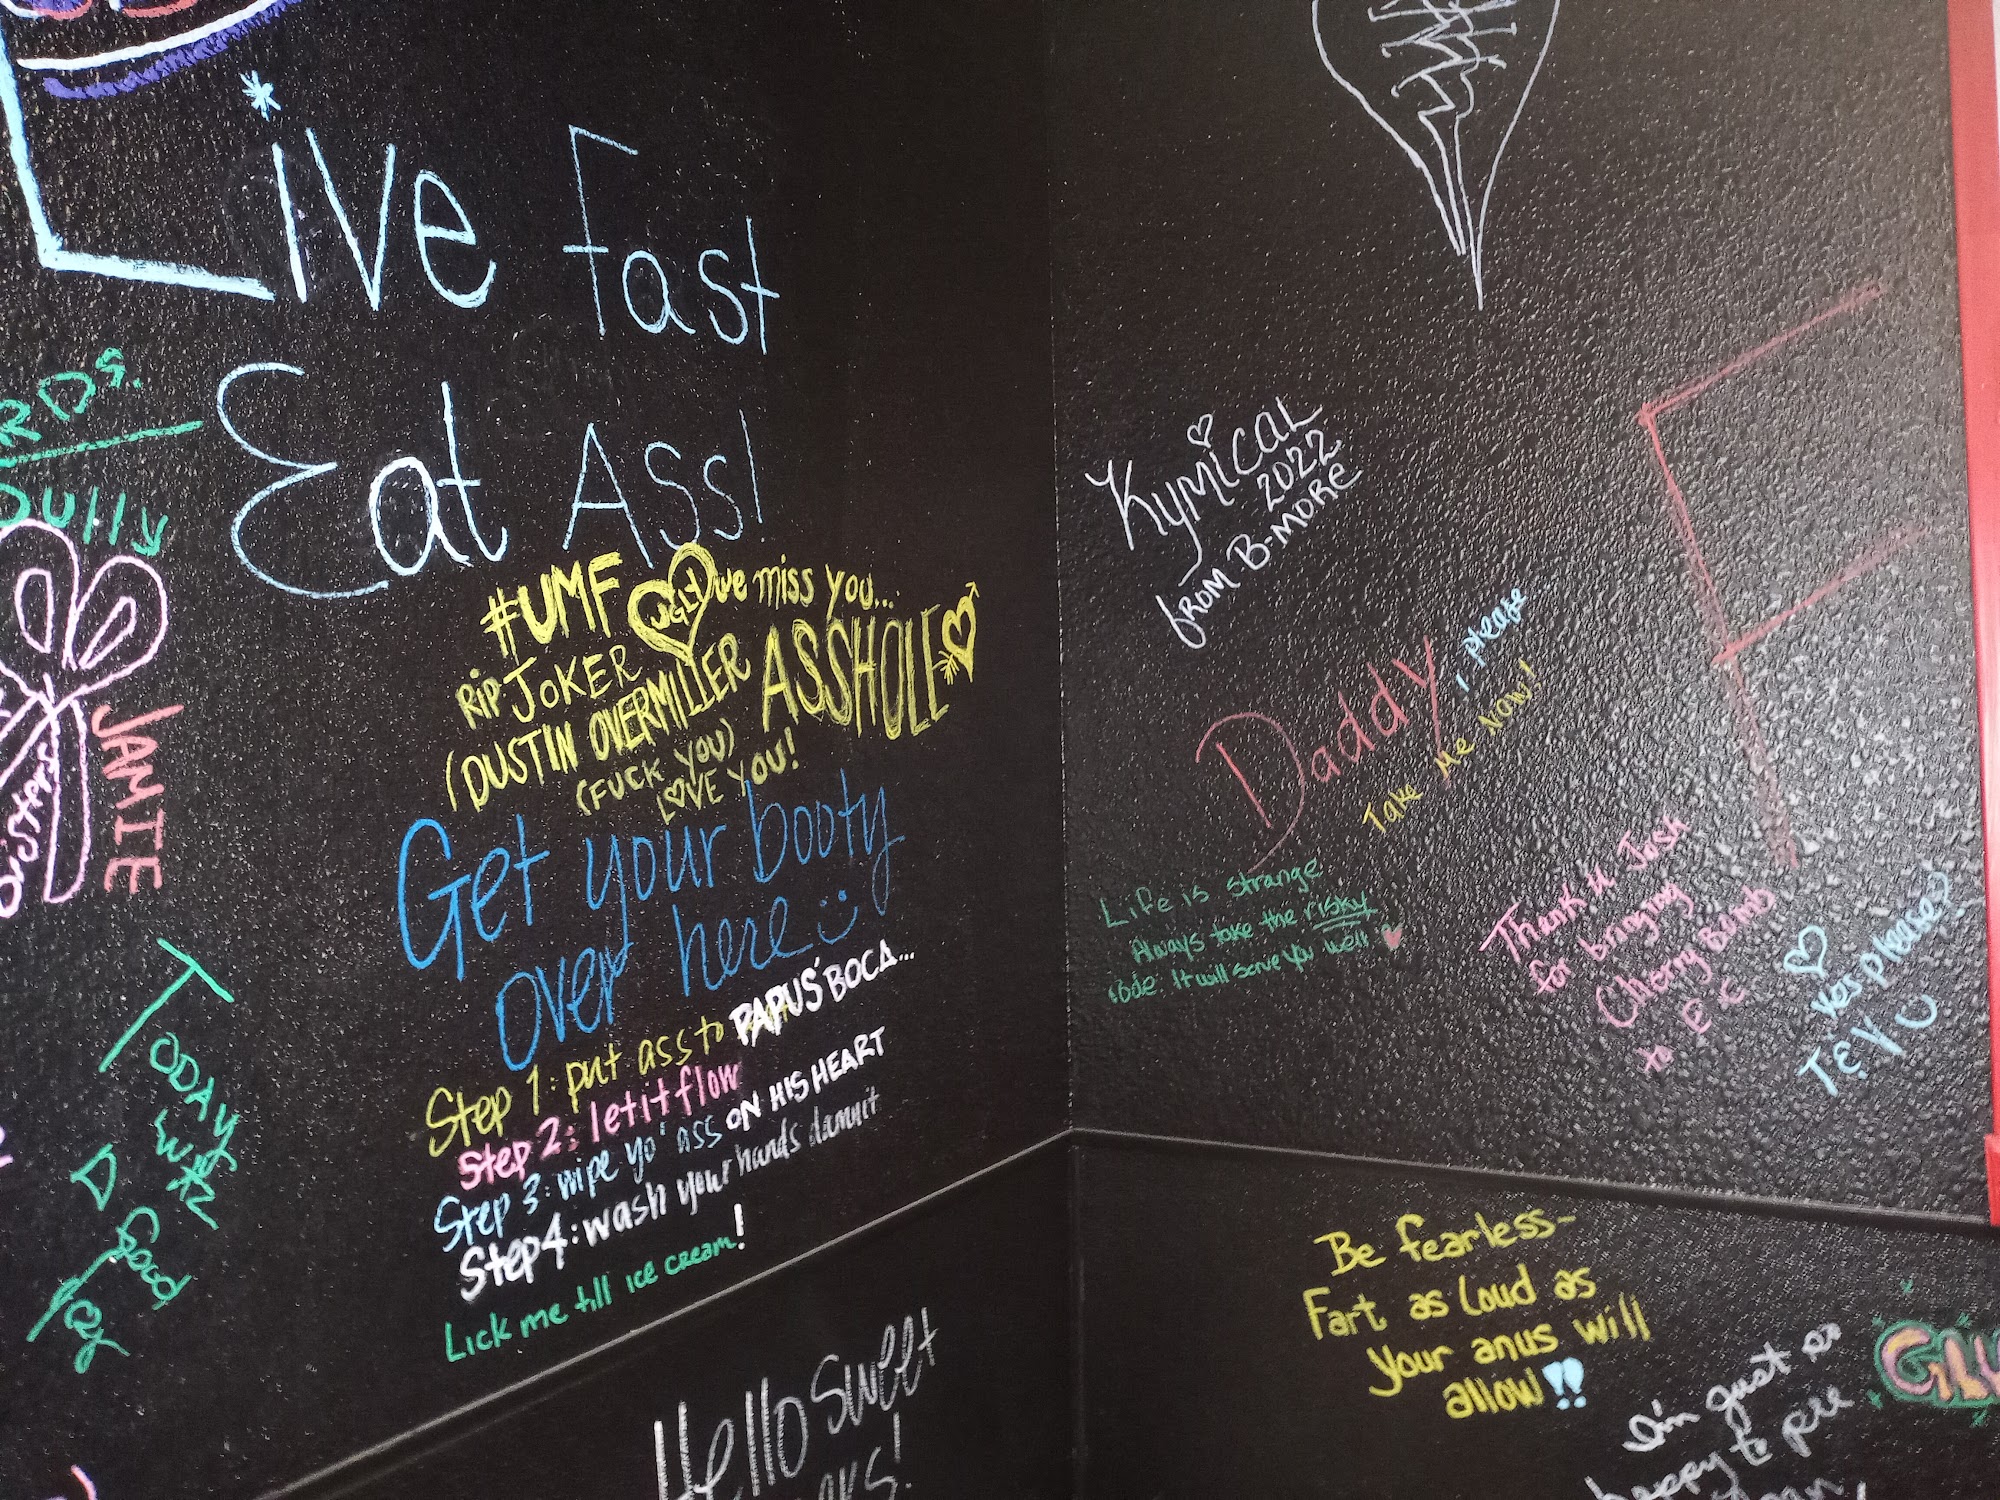 Live Fast
Eat Ass!
RDs.
JAMIE
#UMF UGLY we miss you...
RIP JOKER
(DUSTIN OVERMILLER ASSHOLE
(FUCK YOU)
LOVE YOU!
Get your booty
over here
Step 1: put ass to PAPUS' BOCA...
Step 2: let it flow
Step 3: wipe yo' ass ON HIS HEART
Step 4: wash your hands damnit
Lick me till ice cream!
TODAY
D
Good
Hello Sweet
Kymical
2022
from B-MORE
F
Daddy, please
Take Me Now!
Life is strange
Always take the risky
code. It will serve you well
Thank U Josh
for bringing
Cherry Bomb
to E C
yes please?
Be fearless-
Fart as loud as
your anus will
allow!!
I'm just so
happy to see